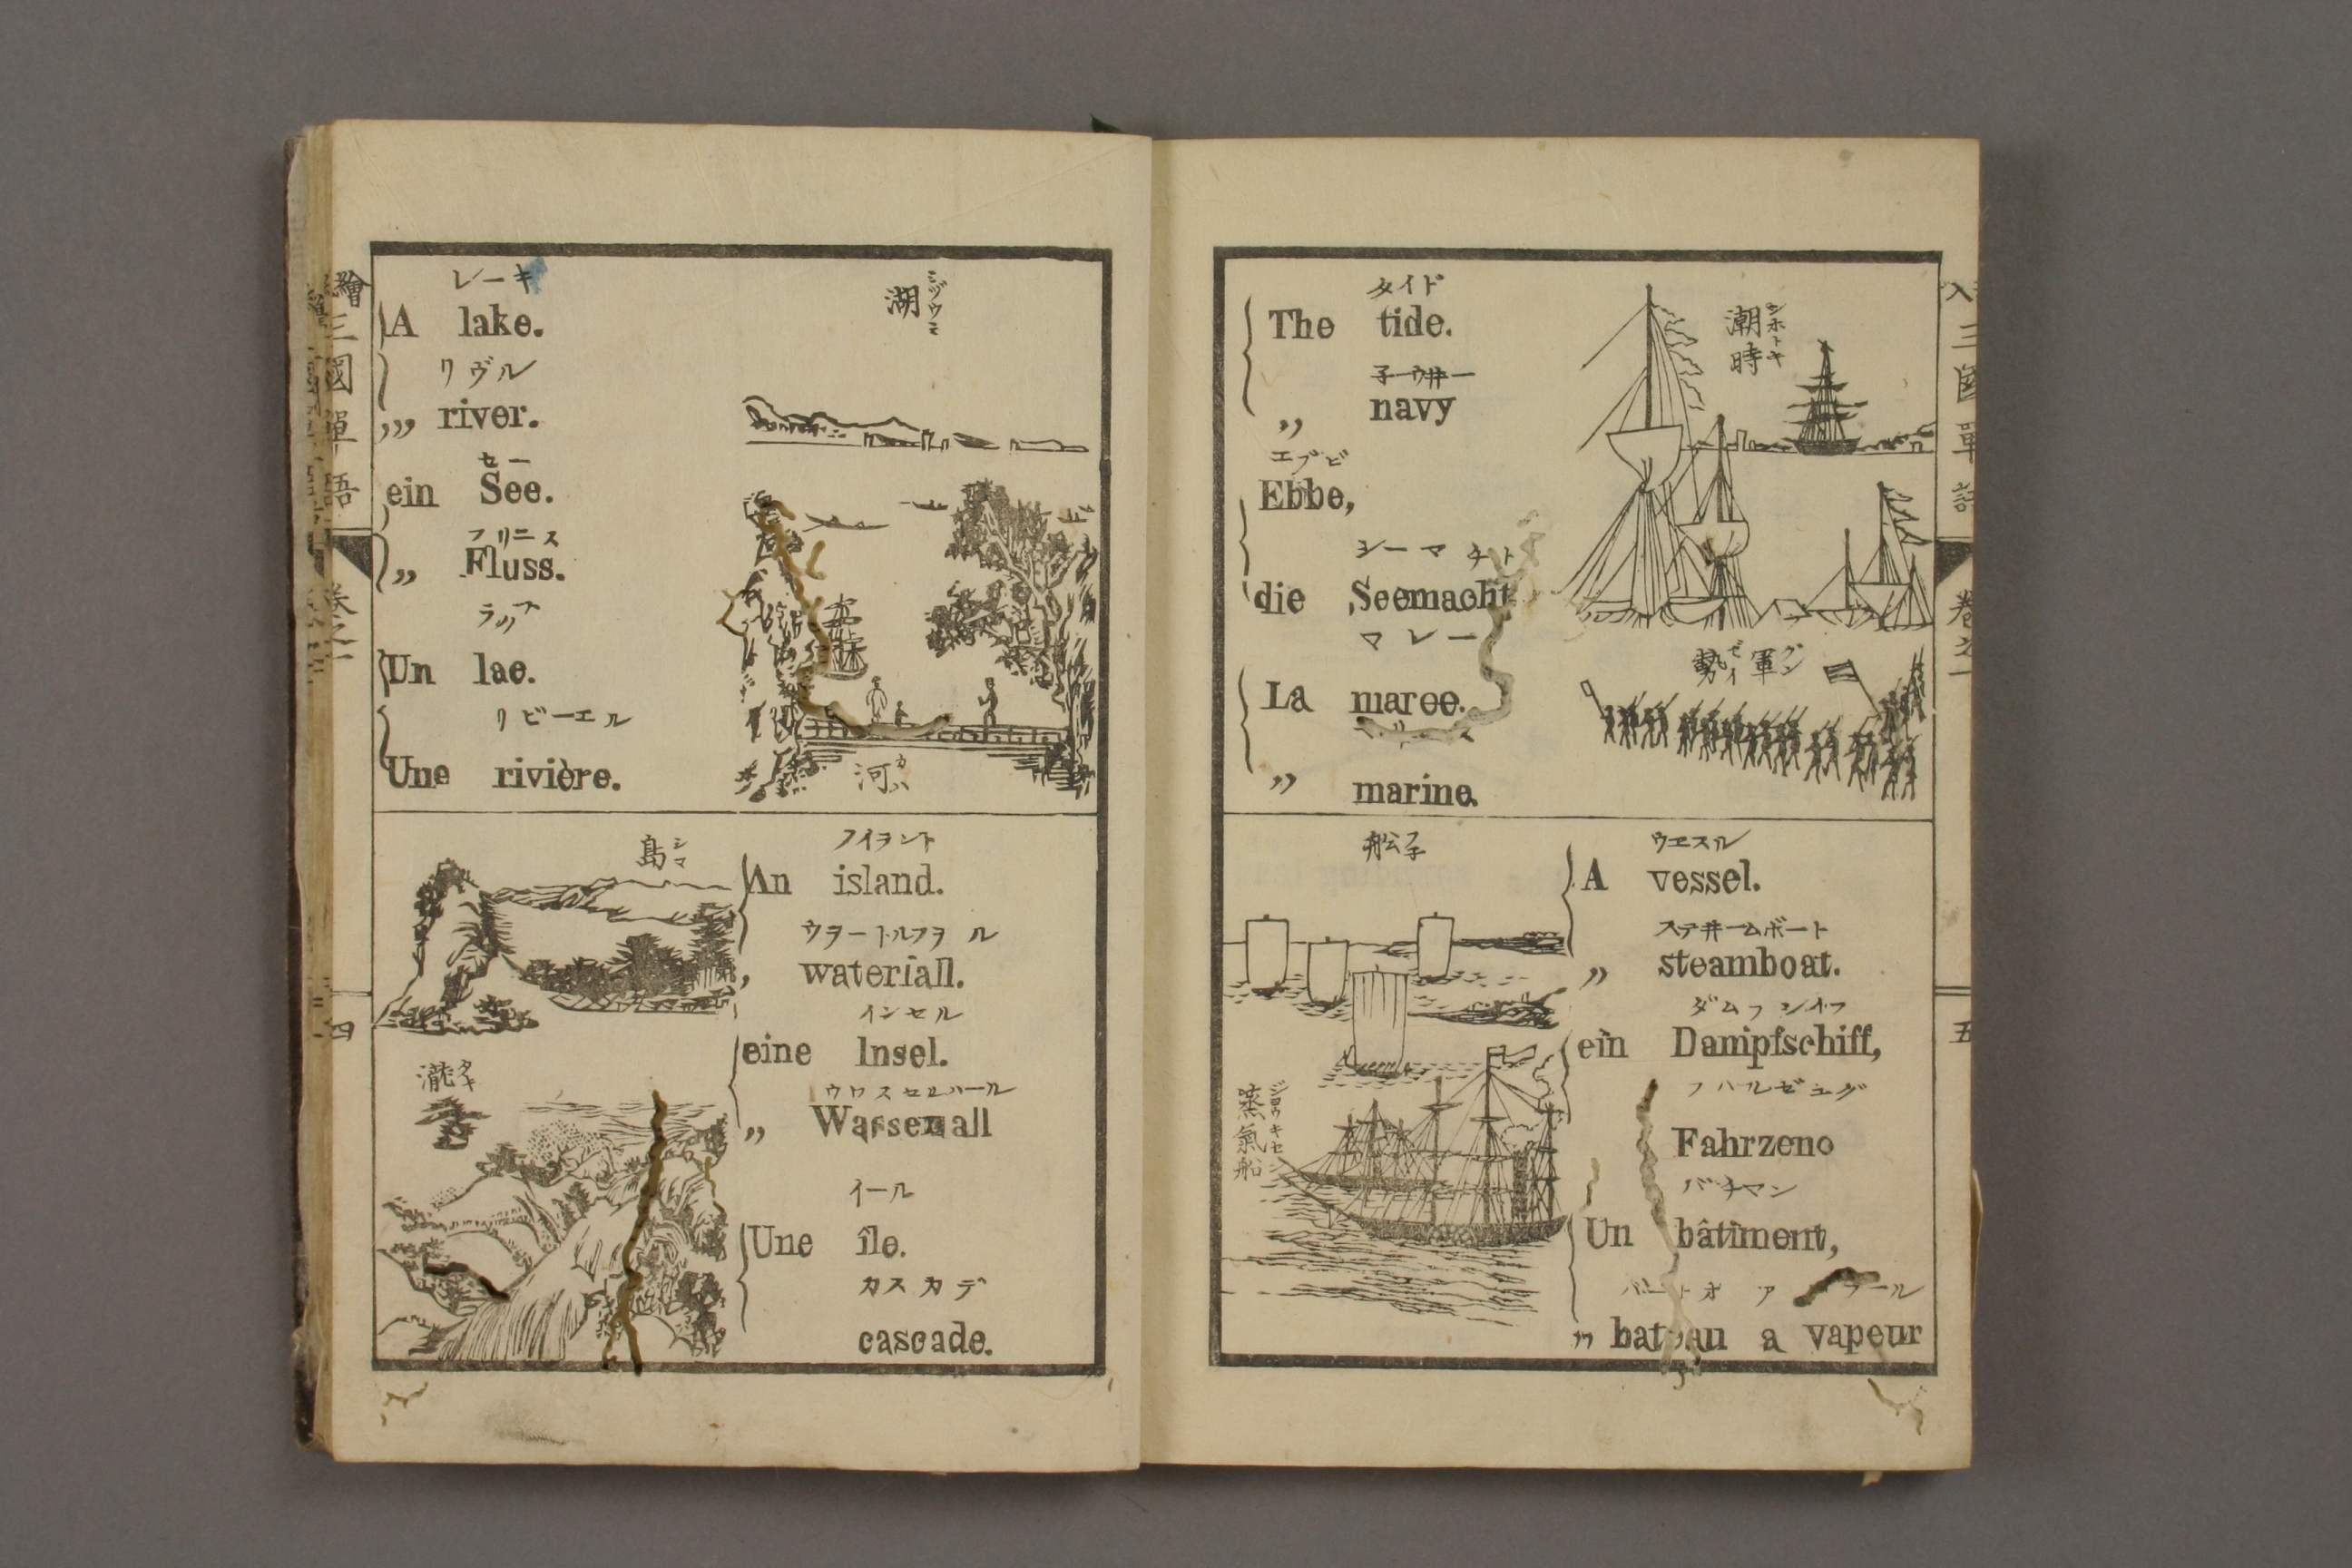 繪
三國單語
卷之一
四
レーキ
A lake.
リヴル
„ river.
セー
ein See.
フリニス
„ Fluss.
Un lac.
リビーエル
Une rivière.
湖
ミヅウミ
河
カハ
島
シマ
瀧
タキ
アイランド
An island.
ウヲートルフヲル
, wateriall.
インセル
eine Insel.
ウワスセルハール
„ Wassenall
イール
Une île.
カスカデ
cascade.
タイド
The tide.
子ーウ井ー
„ navy
エブビ
Ebbe,
シーマチト
die Seemacht
マレー
La maree.
„ marine.
潮時
シホトキ
軍勢
グンゼイ
舩
フ子
蒸氣船
ジヨウキセン
ウエスル
A vessel.
ステ井ームボート
„ steamboat.
ダムフシイフ
ein Danipfschiff,
フハルゼエグ
Fahrzeno
バチマン
Un bâtiment,
„ bateau a vapeur
入三國單語
卷之一
五